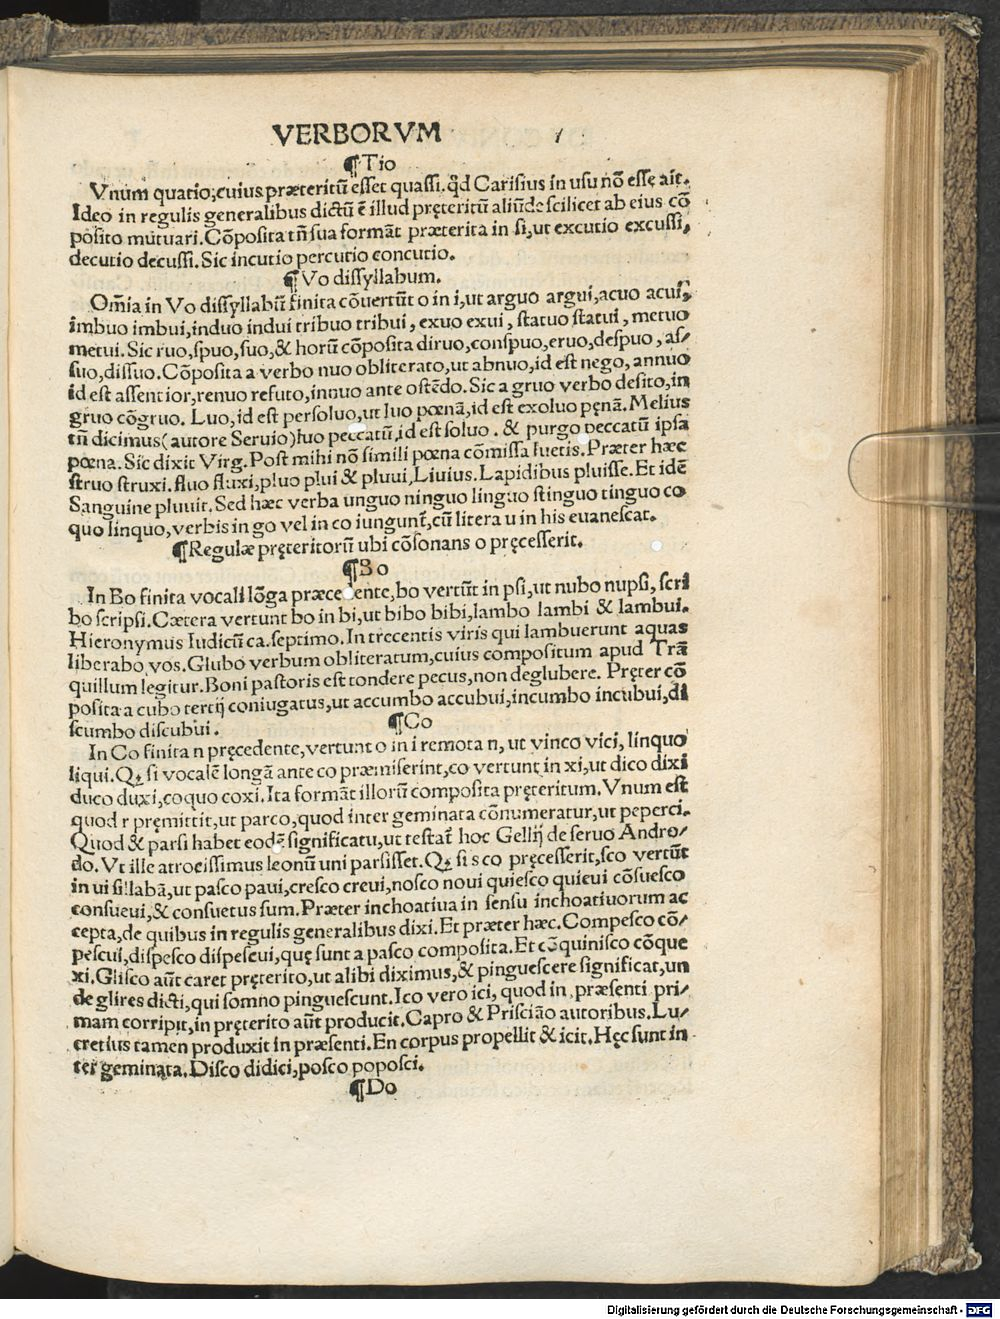 VERBORVM
¶Tio
Vnum quatio;cuius præteritũ esset quassi.qd̃ Carisius in usu nõ esse ait.
Ideo in regulis generalibus dictũ ẽ illud pręteritũ aliũde scilicet ab eius cõ
posito mutuari.Cõposita tñ sua formãt præterita in si,ut excutio excussi,
decutio decussi.Sic incutio percutio concutio.
¶Vo dissyllabum.
Omĩa in Vo dissyllabũ finita cõuertũt o in i,ut arguo argui,acuo acui,
imbuo imbui,induo indui tribuo tribui, exuo exui, statuo statui, metuo
metui.Sic ruo,spuo,suo,& horũ cõposita diruo,conspuo,eruo,despuo, as/
suo,dissuo.Cõposita a verbo nuo obliterato,ut abnuo,id est nego, annuo
id est assentior,renuo refuto,innuo ante ostẽdo.Sic a gruo verbo desito,in
gruo cõgruo. Luo,id est persoluo,ut luo pœnã,id est exoluo pęnã.Melius
tñ dicimus(autore Seruio)luo peccatũ,id est soluo. & purgo peccatũ ipsa
pœna.Sic dixit Virg.Post mihi nõ simili pœna cõmissa luetis.Præter hæc
struo struxi.fluo fluxi,pluo plui & pluui,Liuius.Lapidibus pluisse.Et idẽ
Sanguine pluuit.Sed hæc verba unguo ninguo linguo stinguo tinguo co
quo linquo,verbis in go vel in co iungunt̃,cũ litera u in his euanescat.
¶Regulæ pręteritorũ ubi cõsonans o pręcesserit.
¶Bo
In Bo finita vocali lõga præcedente,bo vertũt in psi,ut nubo nupsi, scri
bo scripsi.Cætera vertunt bo in bi,ut bibo bibi,lambo lambi & lambui.
Hieronymus Iudicũ ca.septimo.In trecentis viris qui lambuerunt aquas
liberabo vos.Glubo verbum obliteratum,cuius compositum apud Trã
quillum legitur.Boni pastoris est tondere pecus,non deglubere. Pręter cõ
posita a cubo tertij coniugatus,ut accumbo accubui,incumbo incubui,di
scumbo discubui.
¶Co
In Co finita n pręcedente,vertunt o in i remota n, ut vinco vici, linquo
liqui.Qꝫ si vocalẽ longã ante co præmiserint,co vertunt in xi,ut dico dixi
duco duxi,coquo coxi.Ita formãt illorũ composita pręteritum.Vnum est
quod r pręmittit,ut parco,quod inter geminata cõnumeratur,ut peperci.
Quod & parsi habet eodẽ significatu,ut testat̃ hoc Gellij de seruo Andro/
do.Vt ille atrocissimus leonũ uni parsisset.Qꝫ si s co pręcesserit,sco vertũt
in ui sillabã,ut pasco paui,cresco creui,nosco noui quiesco quieui cõsuesco
consueui,& consuetus sum.Præter inchoatiua in sensu inchoatiuorum ac
cepta,de quibus in regulis generalibus dixi.Et præter hæc.Compesco cõ/
pescui,dispesco dispescui,quę sunt a pasco composita.Et cõquinisco cõque
xi.Glisco aũt caret pręterito,ut alibi diximus,& pinguescere significat,un
de glires dicti,qui somno pinguescunt.Ico vero ici, quod in præsenti pri/
mam corripit,in pręterito aũt producit.Capro & Priscião autoribus.Lu/
cretius tamen produxit in præsenti.En corpus propellit & icit.Hęc sunt in
ter geminata.Disco didici,posco poposci.
¶Do
Digitalisierung gefördert durch die Deutsche Forschungsgemeinschaft - DFG